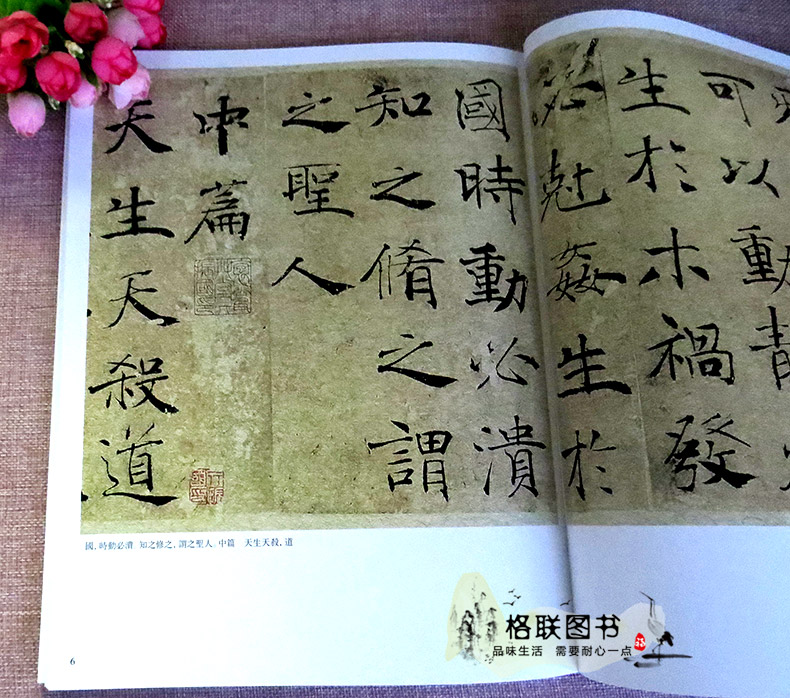 可以動
生於木禍發
必尅姦生於
國時動必潰
知之脩之謂
之聖人
中篇
天生天殺道
國，時動必潰 知之修之，謂之聖人。中篇 天生天殺，道
6
格联图书
品味生活 需要耐心一点